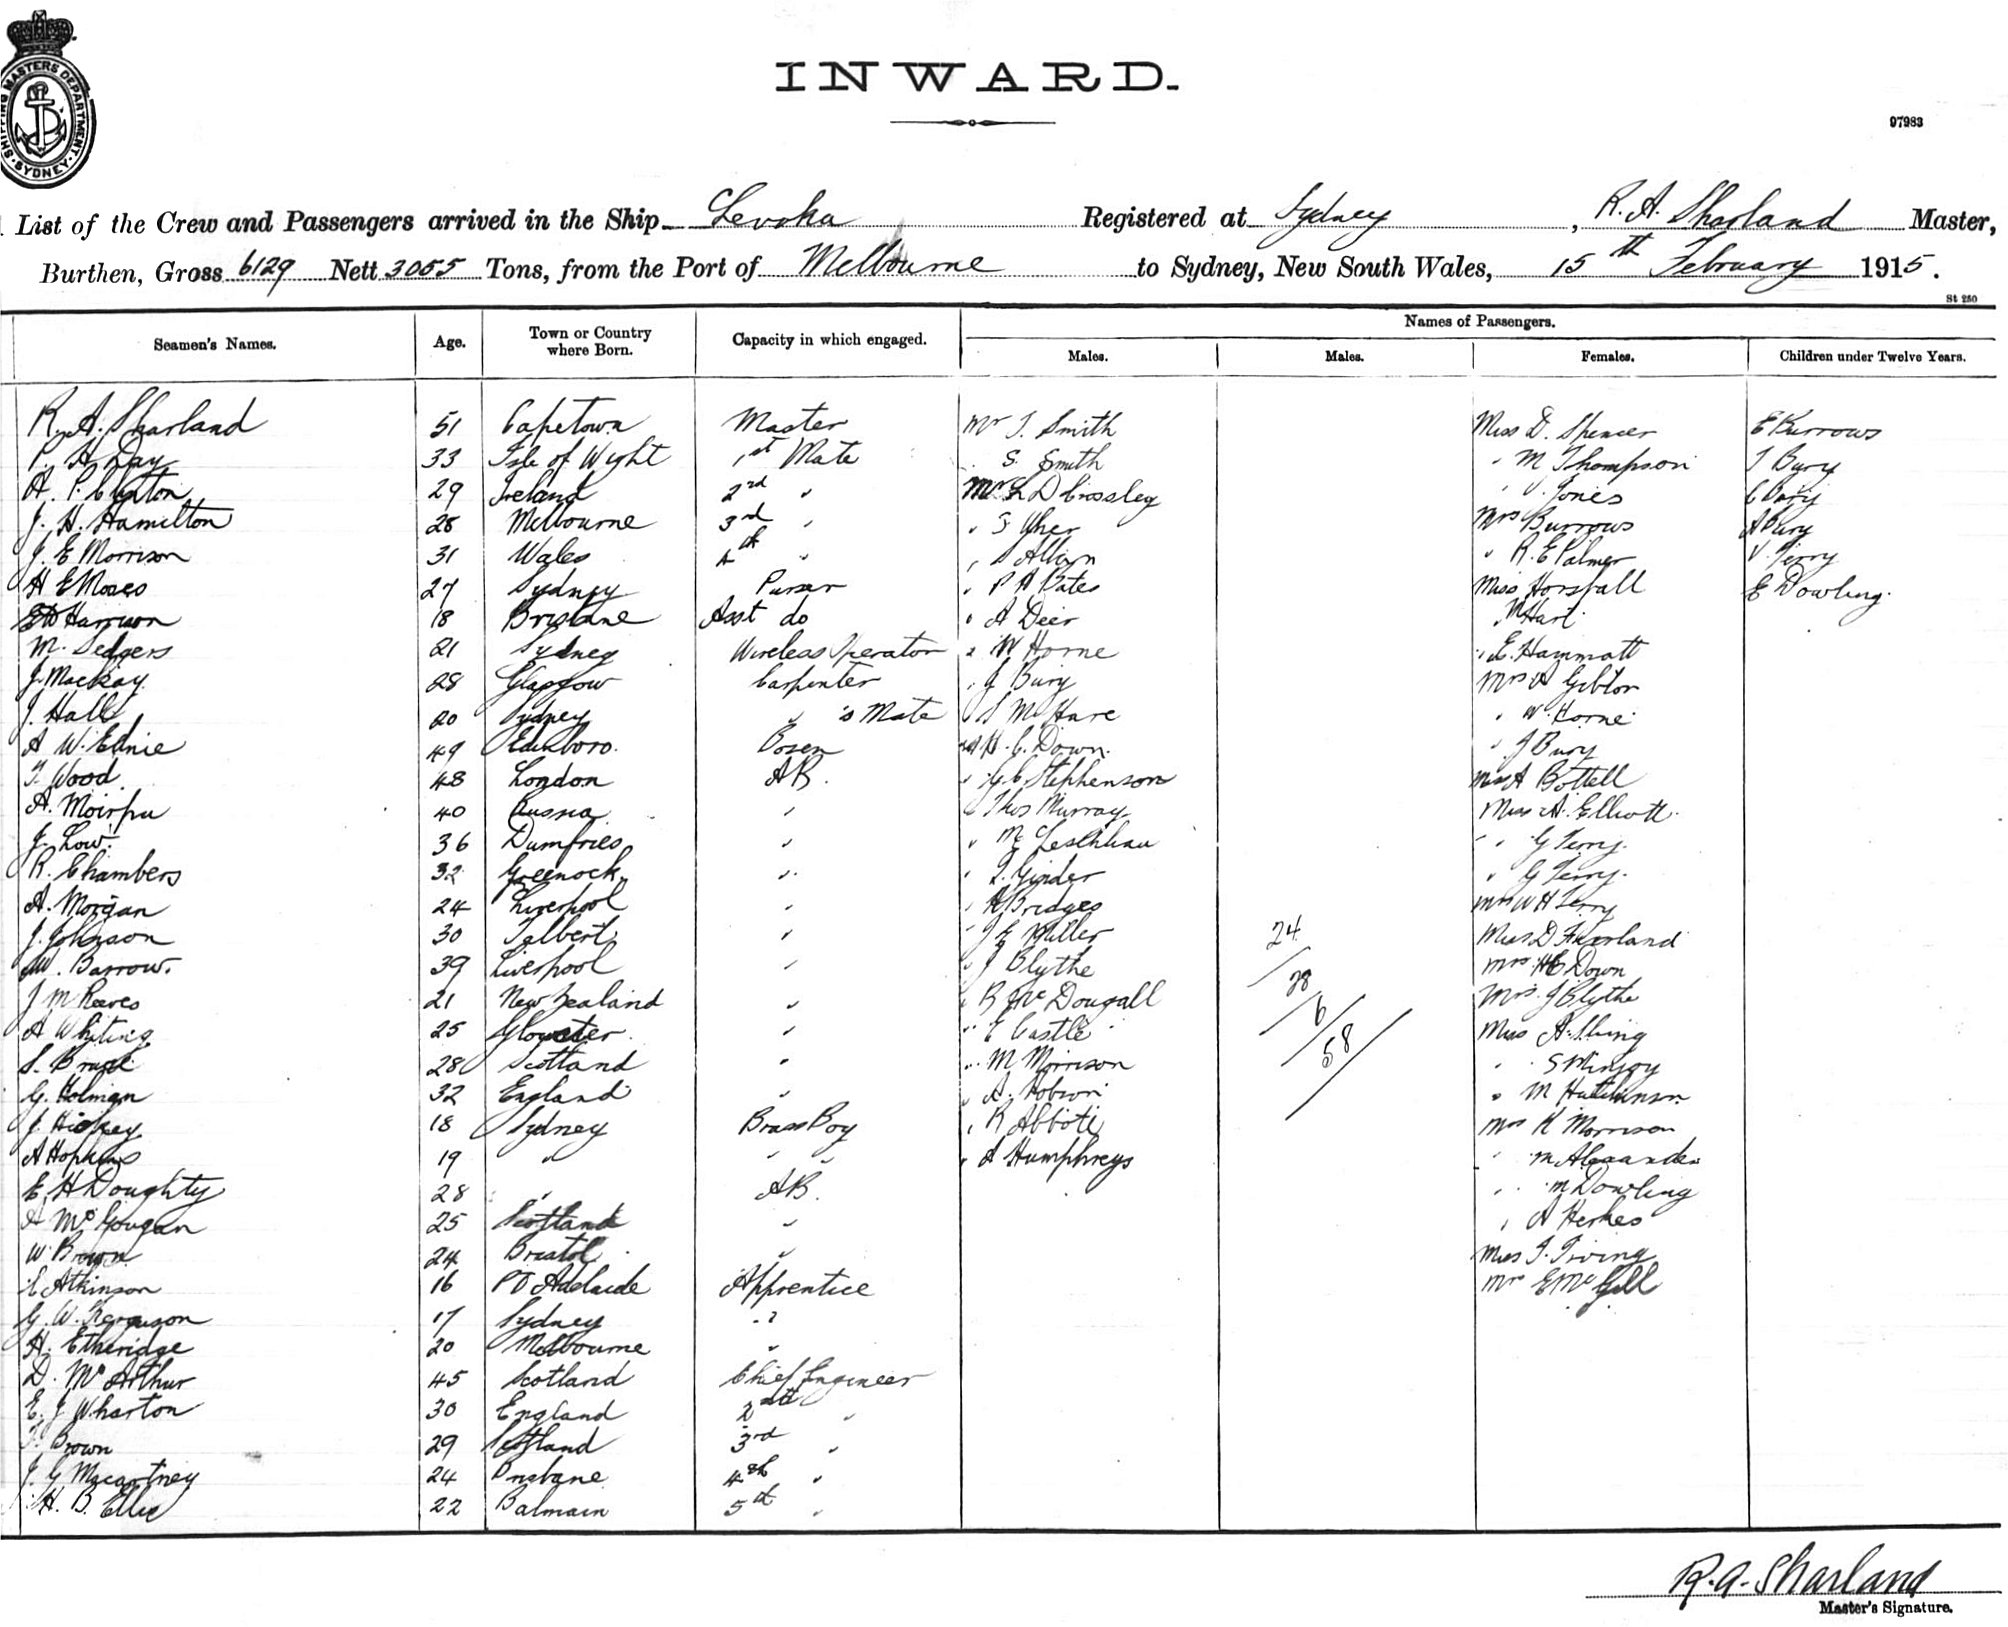 SHIPPING MASTERS DEPARTMENT · SYDNEY ·
INWARD.
97983
List of the Crew and Passengers arrived in the Ship Levuka Registered at Sydney, R. A. Sharland Master,
Burthen, Gross 6129 Nett 3055 Tons, from the Port of Melbourne to Sydney, New South Wales, 15th February 1915.
St 250
Seamen's Names. Age. Town or Country where Born. Capacity in which engaged. Names of Passengers.
Males. Males. Females. Children under Twelve Years.
R. A. Sharland 51 Capetown Master Mr J. Smith Miss D. Spencer E Burrows
P. H Day 33 Isle of Wight 1st Mate " S. Smith " M Thompson J Bury
A. P. Clinton 29 Ireland 2nd " D Crossley " J. Jones C Bury
J. H. Hamilton 28 Melbourne 3rd " " S Mrs Burrows A Bury
J. E Morrison 31 Wales 4th " " S " R. E Palmer V. Terry
H E Moses 27 Sydney Purser " P A Bates Miss Horsfall E Dowling
Harrison 18 Brisbane Asst do " A Deer " Hart
M. Sedgers 21 Sydney Wireless Operator " W Horne " E. Hammatt
J. Mackay 28 Glasgow Carpenter " J Bury Mrs A
J. Hall 20 Sydney " 's Mate " S Mc Hare " W. Horne
A W. Ednie 49 Edinboro. Bosen H. C. Down. " J Bury
T. Wood 48 London AB. " G C Stephenson Miss A Bottell
A. 40 Russia " Thos Murray Miss A. Elliott
J. Low. 36 Dumfries " " Mc " G Terry.
R. Chambers 32 Greenock " " T. Ginder " G Terry.
A. Morgan 24 Liverpool " " R Bridges Mrs W H Terry
J. Johnson 30 Talbert " " J E Miller 24 Miss D
W. Barrow. 39 Liverpool " " J Blythe Mrs H C Down
J M Reeves 21 New Zealand " " R Mc Dougall 28 Mrs. J Blythe
A Whiting 25 Glowster " " E Castle 6 Miss A.
S. 28 Scotland " " M Morrison 58 " S
G. Holman 32 England " " A. Hobson " M Hutchinson
J. Hickey 18 Sydney Brass Boy " R Abbott Mrs K Morrison
A Hopkins 19 " " " " A Humphreys " M Alexander
E. H Doughty 28 " AB. " M Dowling
A Mc Gougan 25 Scotland " " A Herkes
W. Brown 24 Bristol " Miss J. Irving
E Atkinson 16 Pt Adelaide Apprentice Mrs E Mc Gill
G. W. Ferguson 17 Sydney "
H. Etheridge 20 Melbourne "
D. Mc Arthur 45 Scotland Chief Engineer
E. J Wharton 30 England 2nd "
F. Brown 29 Scotland 3rd "
J. G Macartney 24 Brisbane 4th "
H. B. Ellis 22 Balmain 5th "
R. A. Sharland
Master's Signature.